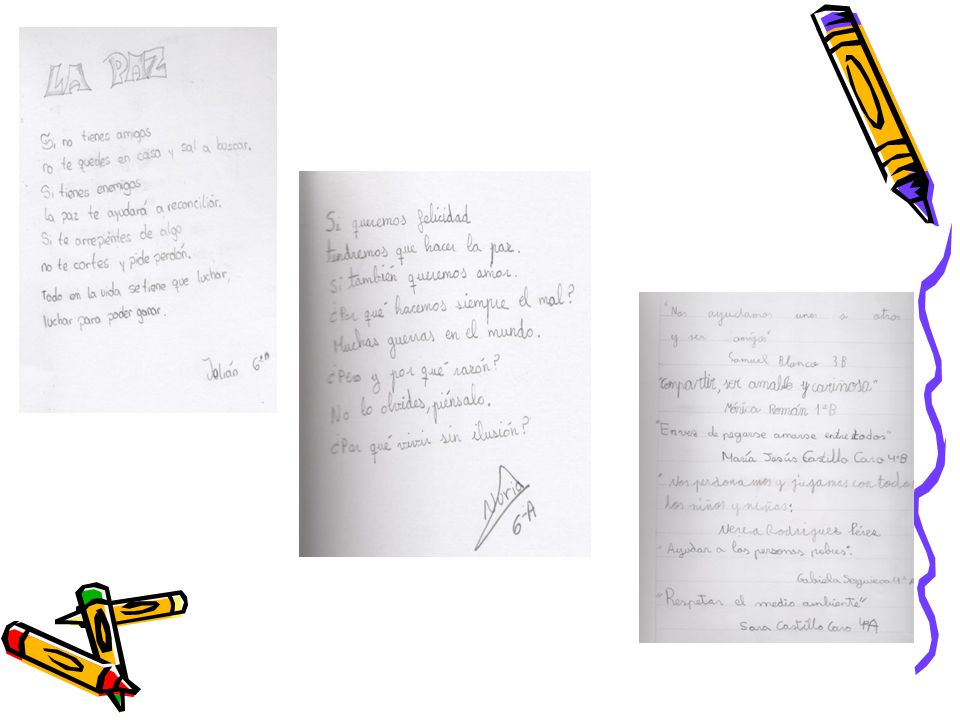 LA PAZ
Si no tienes amigos
no te quedes en casa y sal a buscar.
Si tienes enemigos
la paz te ayudará a reconciliar.
Si te arrepientes de algo
no te cortes y pide perdón.
Todo en la vida se tiene que luchar,
luchar para poder ganar.
Julián 6º A
Si queremos felicidad
tendremos que hacer la paz.
Si también queremos amor.
¿Por qué hacemos siempre el mal?
Muchas guerras en el mundo.
¿Pero y por qué razón?
No lo olvides, piénsalo.
¿Por qué vivir sin ilusión?
Nuria
6-A
"Nos ayudamos unos a otros
y ser amigos"
Samuel Blanco 3B
"Compartir, ser amable y cariñosa"
Mónica Román 1ºB
"Enves de pegarse amarse entre todos"
María Jesús Castillo Caro 4ºB
"Nos perdonamos y jugamos con todos
los niños y niñas."
Nerea Rodriguez Pérez
"Ayudar a las personas pobres".
Gabiela 4ºA
"Respetar el medio ambiente"
Sara Castillo Caro 4ºA